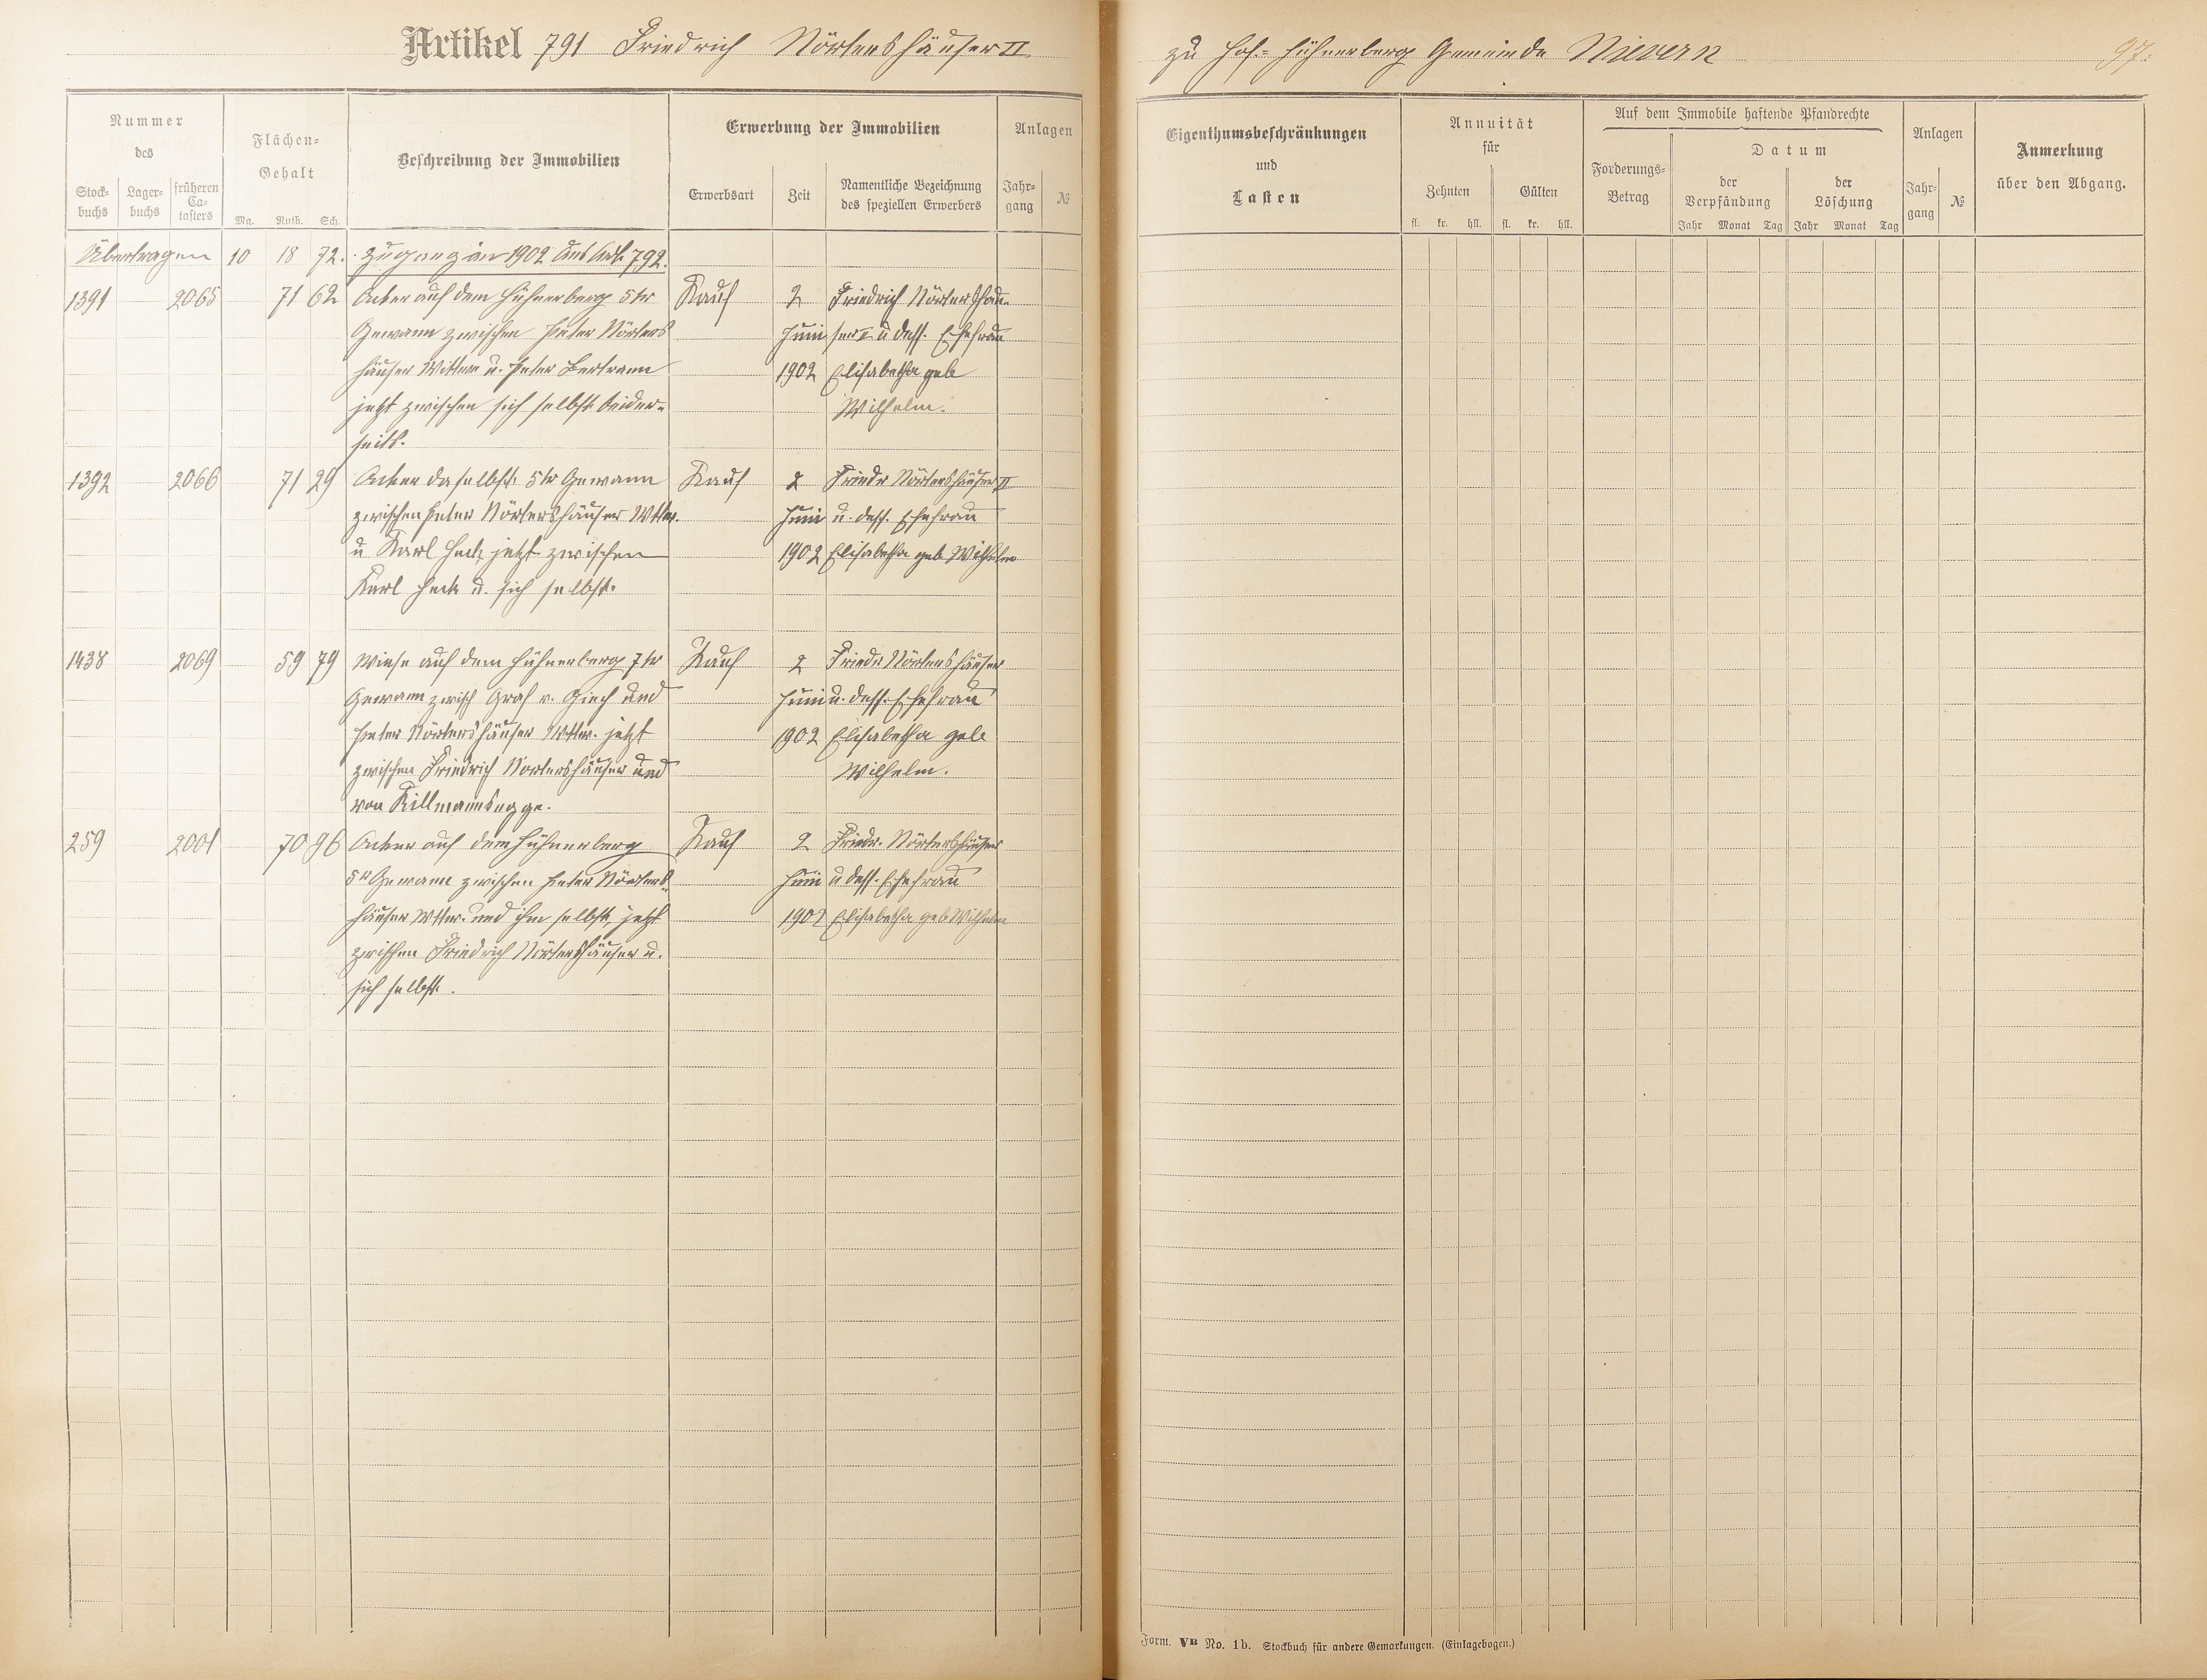 Artikel 791 Friedrich Nörtershäuser II
zu Hof-Hühnerberg Gemeinde Nievern
97.
Nummer
des
Stock-
buchs
Lager-
buchs
früheren
Ca-
tasters
Flächen-
Gehalt
Mg. Ruth. Sch.
Beschreibung der Immobilien
Erwerbung der Immobilien
Erwerbsart
Zeit
Namentliche Bezeichnung
des speziellen Erwerbers
Anlagen
Jahr-
gang
№
Eigenthumsbeschränkungen
und
Lasten
Annuität
für
Zehnten
Gülten
fl. kr. hll. fl. kr. hll.
Auf dem Immobile haftende Pfandrechte
Forderungs-
Betrag
Datum
der
Verpfändung
der
Löschung
Jahr Monat Tag Jahr Monat Tag
Anlagen
Jahr-
gang
№
Anmerkung
über den Abgang.
Übertragen 10 18 72. Zugang in 1902 aus Art. 792.
1391 2065 71 62 Acker auf dem Hühnerberg 5tr Kauf 2 Friedrich Nörtershäu-
Gewann zwischen Peter Nörters Juni ser II u dess. Ehefrau
häuser Wittwe u. Peter Bertram 1902 Elisabetha geb
jetzt zwischen sich selbst beider- Wilhelm.
seits.
1392 2066 71 29 Acker daselbst 5tr Gewann Kauf 2 Friedr Nörtershäuser II
zwischen Peter Nörtershäuser Wttw. Juni u. dess. Ehefrau
u Karl Heck, jetzt zwischen 1902 Elisabetha geb Wilhelm
Karl Heck u. sich selbst.
1438 2069 59 79 Wiese auf dem Hühnerberg 7tr Kauf 2 Friedr Nörtershäuser
Gewann zwisch Graf v. Giech und Juni u. dess. Ehefrau
Peter Nörtershäuser Wttw. jetzt 1902 Elisabetha geb
zwischen Friedrich Nörtershäuser und Wilhelm.
von Killmannsegge.
259 2001 70 96 Acker auf dem Hühnerberg Kauf 2 Friedr. Nörtershäuser
5tr Gewann zwischen Peter Nörters- Juni u dess. Ehefrau
häuser Wttw. und ihm selbst, jetzt 1902 Elisabetha geb Wilhelm
zwischen Friedrich Nörtershäuser u.
sich selbst.
Form. VB No. 1b. Stockbuch für andere Gemarkungen. (Einlagebogen.)